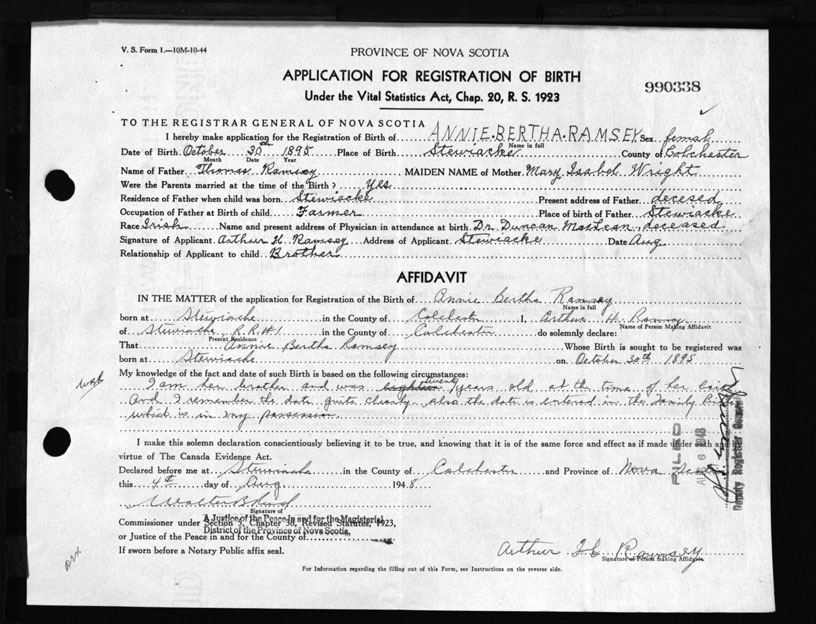 V. S. Form 1.—10M-10-44
PROVINCE OF NOVA SCOTIA
APPLICATION FOR REGISTRATION OF BIRTH
Under the Vital Statistics Act, Chap. 20, R. S. 1923
990338
TO THE REGISTRAR GENERAL OF NOVA SCOTIA
I hereby make application for the Registration of Birth of ANNIE. BERTHA. RAMSEY Sex femal
Name in full
Date of Birth October 30th 1895 Place of Birth Stewiacke County of Colchester
Month Date Year
Name of Father Thomas Ramsey MAIDEN NAME of Mother Mary Isabel Wright
Were the Parents married at the time of the Birth? Yes
Residence of Father when child was born Stewiacke Present address of Father decesed
Occupation of Father at Birth of child Farmer Place of birth of Father Stewiacke
Race Irish Name and present address of Physician in attendance at birth Dr. Duncan MacLean, deceased
Signature of Applicant Arthur H. Ramsey Address of Applicant Stewiacke Date Aug
Relationship of Applicant to child Brother
AFFIDAVIT
IN THE MATTER of the application for Registration of the Birth of Annie Bertha Ramsey
Name in full
born at Stewiacke in the County of Colchester I, Arthur H. Ramsey
Name of Person Making Affidavit
of Stewiacke R.R#1 in the County of Colchester do solemnly declare:
Present Residence
That Annie Bertha Ramsey Whose Birth is sought to be registered was
born at Stewiacke on October 30th 1895
My knowledge of the fact and date of such Birth is based on the following circumstances:
I am her brother and was eighteen twenty years old at the time of her birth
And I remember the date quite clearly. also the date is entered in the Family Bible
which is in my possession.
I make this solemn declaration conscientiously believing it to be true, and knowing that it is of the same force and effect as if made under oath and
virtue of The Canada Evidence Act.
Declared before me at Stewiacke in the County of Colchester and Province of Nova Scotia
this 4th day of Aug 1948
Signature of
Commissioner under Section 3, Chapter 38, Revised Statutes, 1923,
A Justice of the Peace in and for the Magisterial
District of the Province of Nova Scotia,
or Justice of the Peace in and for the County of
If sworn before a Notary Public affix seal.
Arthur H. Ramsey
Signature of Person Making Affidavit
For Information regarding the filling out of this Form, see Instructions on the reverse side.
FILED
Deputy Registrar General